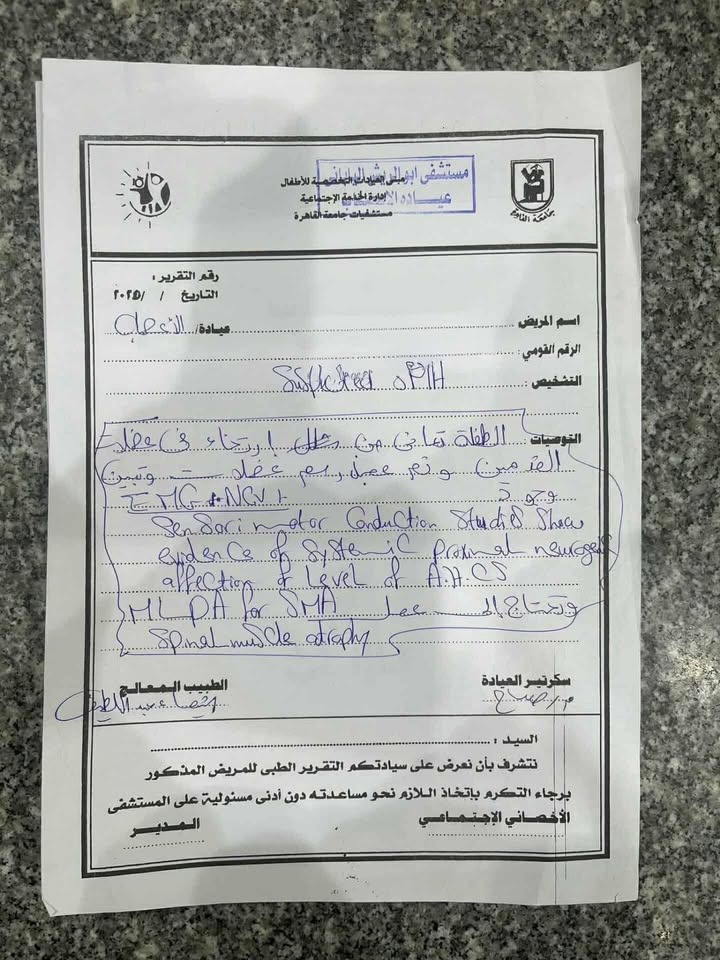 مستشفى ابو الريش اليابانى
مبنى العيادات التخصصية للأطفال
إدارة الخدمة الإجتماعية
عيادة
مستشفيات جامعة القاهرة
جامعة القاهرة
رقم التقرير :
التاريخ / / ٢٠٢٥
اسم المريض عيادة/ الأعصاب
الرقم القومى :
التشخيص : PIH
التوصيات الطفلة تعانى من ارتخاء فى عضلات
القدمين وتم عمل رسم عضلات وتبين
وجود
EMG + NCV
Sensori motor Conduction Studies Show
evidence of Systemic proximal neurogenic
affection of Level of A.H.CS
وتحتاج إلى عمل MLPA for SMA
Spinal muscle atrophy
سكرتير العيادة الطبيب المعالج
عبد اللطيف
السيد :
نتشرف بأن نعرض على سيادتكم التقرير الطبى للمريض المذكور
برجاء التكرم بإتخاذ اللازم نحو مساعدته دون أدنى مسئولية على المستشفى
الأخصائي الإجتماعي المدير